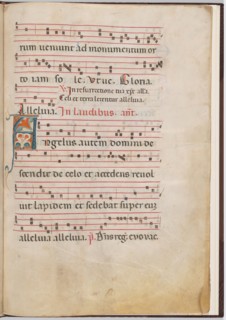 rum ueniunt ad monumentum or
to iam so le. V. ue. Gloria.
V. In resurrectione tua xpe alla.
Celi et terra letentur alleluia.
Alleluia. In laudibus. ant.
Angelus autem domini de
scendit de celo et accedens reuol
uit lapidem et sedebat super eum
alleluia alleluia. p. Dns reg. euouae.